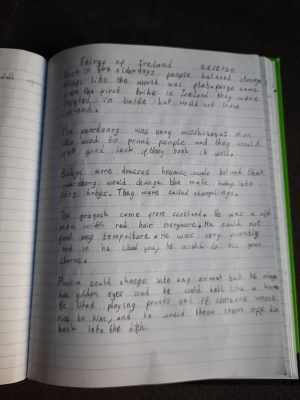 Fairys of Ireland 26/2/20
Back in the olden days people beleved
things like the world was flat. came
from the first tribe in Ireland they were
in battle but would not leave
Ireland.
The was very mischievous man
he used to prank people and they would
get good luck if they took it well.
Babys wore dresses because people beleved that
would change the male babys into
fairy babys. They were called changlings.
The grogoch came from scotland. he was a old
man with red hair everywere. He could not
feel any tempriture. He was very friendly
and if he liked you, he would do all your
chores.
could change into any animal but he always
has golden eyes and he could talk like a human
He liked playing pranks and if someone wasnt
nice to him, and he would throw them off his
back into the ditch.